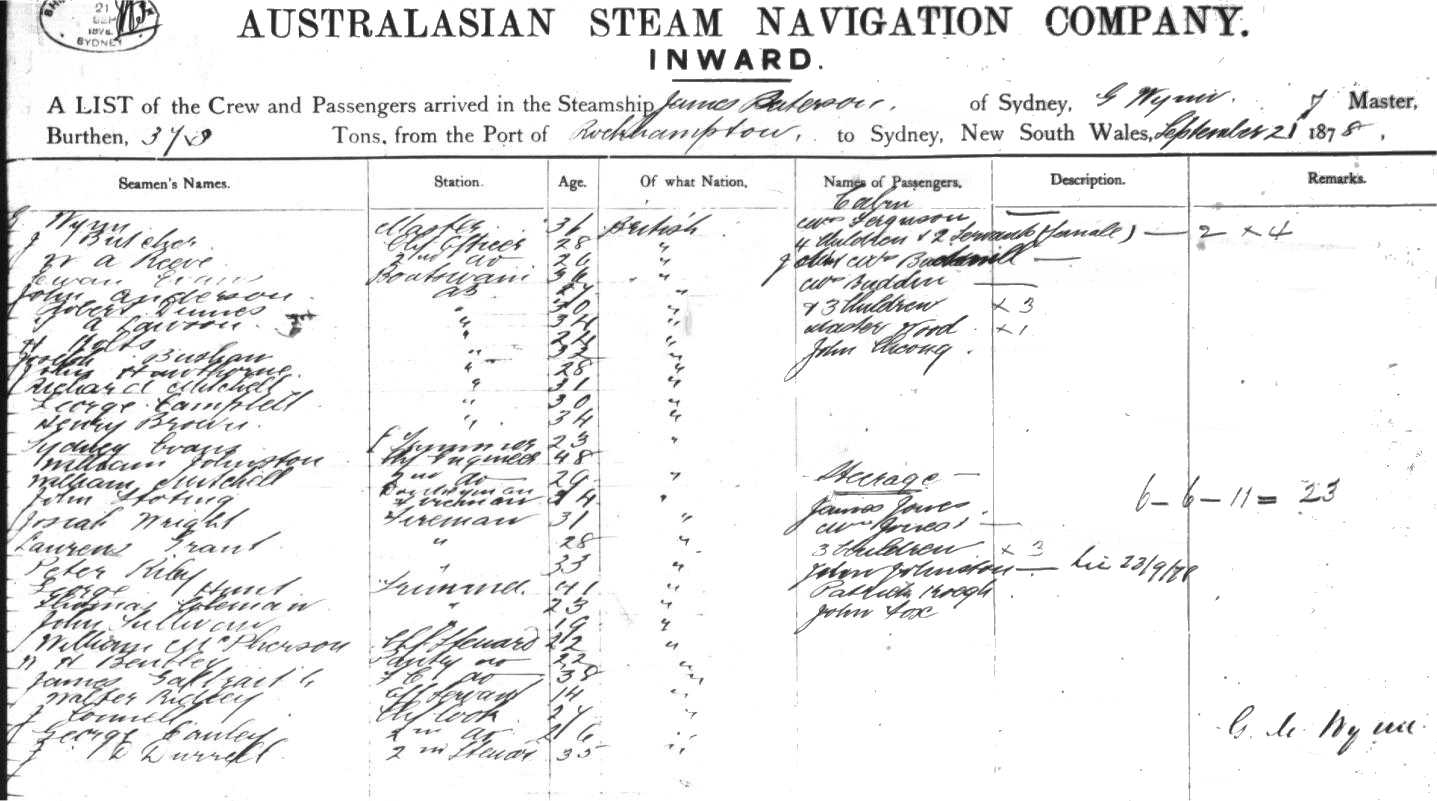 21
SEP
1878
SYDNEY
AUSTRALASIAN STEAM NAVIGATION COMPANY.
INWARD.
A LIST of the Crew and Passengers arrived in the Steamship James Paterson, of Sydney, G Wynn. Master,
Burthen, Tons, from the Port of Rockhampton, to Sydney, New South Wales, September 21 1878,
Seamen's Names. Station. Age. Of what Nation, Names of Passengers, Description. Remarks.
Cabin
G Wynn Master 36 British Mrs Ferguson
J Butcher Chf Officer 28 " 4 Children & 2 Servants (female) — 2 × 4
W A Reeve 2nd do 26 " John
Ewan Evans Boatswain 36 " Mrs Buddin —
John Anderson AB 27 "
Robert Dennes " 30 " & 3 Children × 3
A Lawson " 34 " Master Wood × 1
H Bolts " 24 "
Joseph Bushan " 32 " John Cheong.
John Hawthorne. " 28 "
Richard Mitchell " 31 "
George Campbell " 30 "
Henry Brown. " 34 "
Sydney Evans 23 "
William Johnston Chf Engineer 48
William Mitchell 2nd do 29 " Steerage —
John 34 " 6 – 6 – 11 = 23
James Jones
Josiah Wright Fireman 31 " Mrs Jones —
Laurens Grant " 28 " 3 Children × 3
Peter Riley " 33 " John Johnston — 23/9/78
George Hunt Trimmer. 41 " Patrick Keogh
Thomas Coleman " 23 " John Fox
John Sullivan 19 "
William McPherson Chf Steward 22 "
W H Bentley Pantry do 22 "
James Galbraith F C do 38 "
Walter Ridley Off Servant 14 "
J Connell Chf Cook 27 "
George Canley 2nd do 26 "
J D Durrell 2nd Steward 35 "
G. Wynn